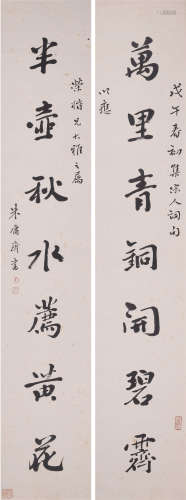 萬里青銅開碧霽
戊午春初集宋人詞句
以應
半壺秋水薦黃花
榮楷兄大雅之屬
朱庸齋書